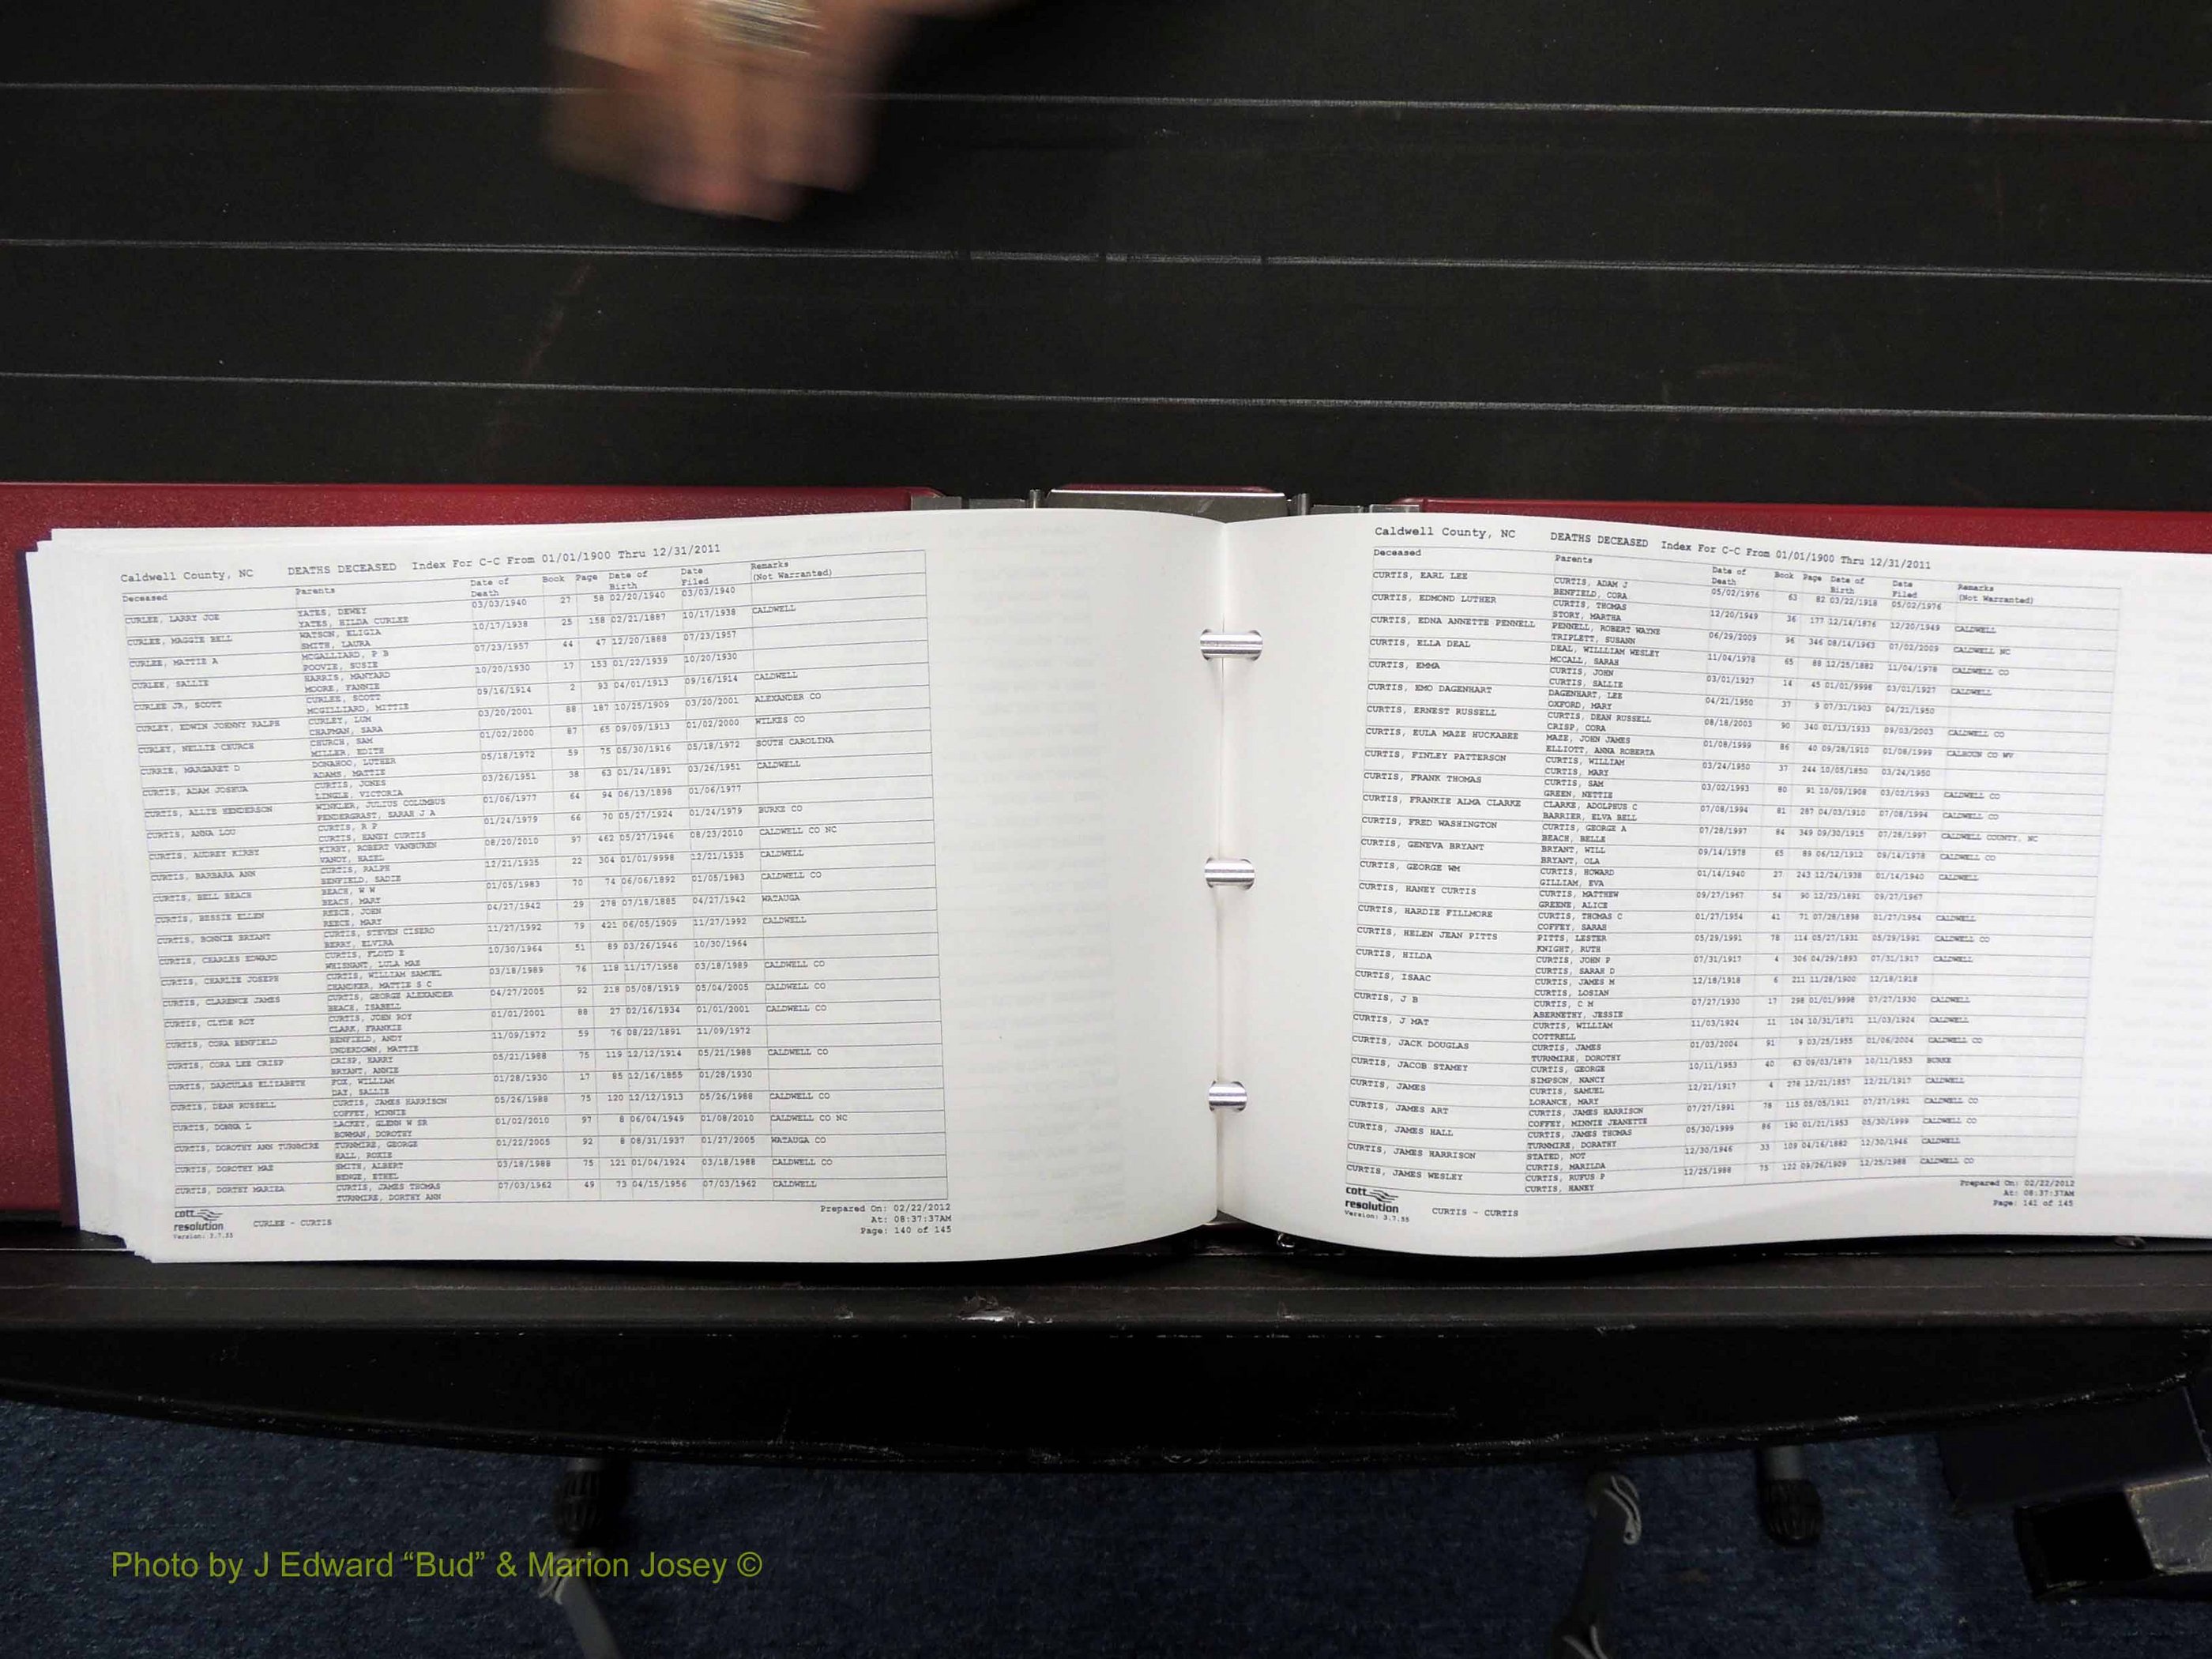 Caldwell County, NC DEATHS DECEASED Index For C-C From 01/01/1900 Thru 12/31/2011
Deceased Parents Date of Death Book Page Date of Birth Date Filed Remarks (Not Warranted)
CURLEE, LARRY JOE YATES, DEWEY 03/03/1940 27 58 02/20/1940 03/03/1940
YATES, HILDA CURLEE
CURLEE, MAGGIE BELL WATSON, ELIGIA 10/17/1938 25 158 02/21/1887 10/17/1938 CALDWELL
SMITH, LAURA
CURLEE, MATTIE A MCGALLIARD, P B 07/23/1957 44 47 12/20/1888 07/23/1957
POOVIE, SUSIE
CURLEE, SALLIE HARRIS, MANYARD 10/20/1930 17 153 01/22/1939 10/20/1930
MOORE, FANNIE
CURLEE JR, SCOTT CURLEE, SCOTT 09/16/1914 2 93 04/01/1913 09/16/1914 CALDWELL
MCGILLIARD, MITTIE
CURLEY, EDWIN JOHNNY RALPH CURLEY, LUM 03/20/2001 88 187 10/25/1909 03/20/2001 ALEXANDER CO
CHAPMAN, SARA
CURLEY, NELLIE CHURCH CHURCH, SAM 01/02/2000 87 65 09/09/1913 01/02/2000 WILKES CO
MILLER, EDITH
CURRIE, MARGARET D DONAHOO, LUTHER 05/18/1972 59 75 05/30/1916 05/18/1972 SOUTH CAROLINA
ADAMS, MATTIE
CURTIS, ADAM JOSHUA CURTIS, JONES 03/26/1951 38 63 01/24/1891 03/26/1951 CALDWELL
LINGLE, VICTORIA
CURTIS, ALLIE HENDERSON WINKLER, JULIUS COLUMBUS 01/06/1977 64 94 06/13/1898 01/06/1977
PENDERGRAST, SARAH J A
CURTIS, ANNA LOU CURTIS, R P 01/24/1979 66 70 05/27/1924 01/24/1979 BURKE CO
CURTIS, HANEY CURTIS
CURTIS, AUDREY KIRBY KIRBY, ROBERT VANBUREN 08/20/2010 97 462 05/27/1946 08/23/2010 CALDWELL CO NC
VANOY, HAZEL
CURTIS, BARBARA ANN CURTIS, RALPH 12/21/1935 22 304 01/01/9998 12/21/1935 CALDWELL
BENFIELD, SADIE
CURTIS, BELL BEACH BEACH, W W 01/05/1983 70 74 06/06/1892 01/05/1983 CALDWELL CO
BEACH, MARY
CURTIS, BESSIE ELLEN REECE, JOHN 04/27/1942 29 278 07/18/1885 04/27/1942 WATAUGA
REECE, MARY
CURTIS, BONNIE BRYANT CURTIS, STEVEN CISERO 11/27/1992 79 421 06/05/1909 11/27/1992 CALDWELL
BERRY, ELVIRA
CURTIS, CHARLES EDWARD CURTIS, FLOYD E 10/30/1964 51 89 03/26/1946 10/30/1964
WHISNANT, LULA MAE
CURTIS, CHARLIE JOSEPH CURTIS, WILLIAM SAMUEL 03/18/1989 76 118 11/17/1958 03/18/1989 CALDWELL CO
CHANDKER, MATTIE S C
CURTIS, CLARENCE JAMES CURTIS, GEORGE ALEXANDER 04/27/2005 92 218 05/08/1919 05/04/2005 CALDWELL CO
BEACH, ISABELL
CURTIS, CLYDE ROY CURTIS, JOHN ROY 01/01/2001 88 27 02/16/1934 01/01/2001 CALDWELL CO
CLARK, FRANKIE
CURTIS, CORA BENFIELD BENFIELD, ANDY 11/09/1972 59 76 08/22/1891 11/09/1972
UNDERDOWN, MATTIE
CURTIS, CORA LEE CRISP CRISP, HARRY 05/21/1988 75 119 12/12/1914 05/21/1988 CALDWELL CO
BRYANT, ANNIE
CURTIS, DARCULAS ELIZABETE FOX, WILLIAM 01/28/1930 17 85 12/16/1855 01/28/1930
DAY, SALLIE
CURTIS, DEAN RUSSELL CURTIS, JAMES HARRISON 05/26/1988 75 120 12/12/1913 05/26/1988 CALDWELL CO
COFFEY, MINNIE
CURTIS, DONNA L LACKEY, GLENN W SR 01/02/2010 97 8 06/04/1949 01/08/2010 CALDWELL CO NC
BOWMAN, DOROTHY
CURTIS, DOROTHY ANN TURNMIRE TURNMIRE, GEORGE 01/22/2005 92 8 08/31/1937 01/27/2005 WATAUGA CO
HALL, ROXIE
CURTIS, DOROTHY MAE SMITH, ALBERT 03/18/1988 75 121 01/04/1924 03/18/1988 CALDWELL CO
BENGE, ETHEL
CURTIS, DORTHY MARIEA CURTIS, JAMES THOMAS 07/03/1962 49 73 04/15/1956 07/03/1962 CALDWELL
TURNMIRE, DORTHY ANN
cott resolution
Version: 3.7.55
CURLEE - CURTIS
Prepared On: 02/22/2012
At: 08:37:37AM
Page: 140 of 145
Caldwell County, NC DEATHS DECEASED Index For C-C From 01/01/1900 Thru 12/31/2011
Deceased Parents Date of Death Book Page Date of Birth Date Filed Remarks (Not Warranted)
CURTIS, EARL LEE CURTIS, ADAM J 05/02/1976 63 82 03/22/1918 05/02/1976
BENFIELD, CORA
CURTIS, EDMOND LUTHER CURTIS, THOMAS 12/20/1949 36 177 12/14/1876 12/20/1949 CALDWELL
STORY, MARTHA
CURTIS, EDNA ANNETTE PENNELL PENNELL, ROBERT WAYNE 06/29/2009 96 346 08/14/1963 07/02/2009 CALDWELL NC
TRIPLETT, SUSANN
CURTIS, ELLA DEAL DEAL, WILLLIAM WESLEY 11/04/1978 65 88 12/25/1882 11/04/1978 CALDWELL CO
MCCALL, SARAH
CURTIS, EMMA CURTIS, JOHN 03/01/1927 14 45 01/01/9998 03/01/1927 CALDWELL
CURTIS, SALLIE
CURTIS, EMO DAGENHART DAGENHART, LEE 04/21/1950 37 9 07/31/1903 04/21/1950
OXFORD, MARY
CURTIS, ERNEST RUSSELL CURTIS, DEAN RUSSELL 08/18/2003 90 340 01/13/1933 09/03/2003 CALDWELL CO
CRISP, CORA
CURTIS, EULA MAZE HUCKABEE MAZE, JOHN JAMES 01/08/1999 86 40 09/28/1910 01/08/1999 CALHOUN CO WV
ELLIOTT, ANNA ROBERTA
CURTIS, FINLEY PATTERSON CURTIS, WILLIAM 03/24/1950 37 244 10/05/1850 03/24/1950
CURTIS, MARY
CURTIS, FRANK THOMAS CURTIS, SAM 03/02/1993 80 91 10/09/1908 03/02/1993 CALDWELL CO
GREEN, NETTIE
CURTIS, FRANKIE ALMA CLARKE CLARKE, ADOLPHUS C 07/08/1994 81 287 04/03/1910 07/08/1994 CALDWELL CO
BARRIER, ELVA BELL
CURTIS, FRED WASHINGTON CURTIS, GEORGE A 07/28/1997 84 349 09/30/1915 07/28/1997 CALDWELL COUNTY, NC
BEACH, BELLE
CURTIS, GENEVA BRYANT BRYANT, WILL 09/14/1978 65 89 06/12/1912 09/14/1978 CALDWELL CO
BRYANT, OLA
CURTIS, GEORGE WM CURTIS, HOWARD 01/14/1940 27 243 12/24/1938 01/14/1940 CALDWELL
GILLIAM, EVA
CURTIS, HANEY CURTIS CURTIS, MATTHEW 09/27/1967 54 90 12/23/1891 09/27/1967
GREENE, ALICE
CURTIS, HARDIE FILLMORE CURTIS, THOMAS C 01/27/1954 41 71 07/28/1898 01/27/1954 CALDWELL
COFFEY, SARAH
CURTIS, HELEN JEAN PITTS PITTS, LESTER 05/29/1991 78 114 05/27/1931 05/29/1991 CALDWELL CO
KNIGHT, RUTH
CURTIS, HILDA CURTIS, JOHN P 07/31/1917 4 306 04/29/1893 07/31/1917 CALDWELL
CURTIS, SARAH D
CURTIS, ISAAC CURTIS, JAMES M 12/18/1918 6 211 11/28/1900 12/18/1918
CURTIS, LOSIAN
CURTIS, J B CURTIS, C M 07/27/1930 17 298 01/01/9998 07/27/1930 CALDWELL
ABERNETHY, JESSIE
CURTIS, J MAT CURTIS, WILLIAM 11/03/1924 11 104 10/31/1871 11/03/1924 CALDWELL
COTTRELL
CURTIS, JACK DOUGLAS CURTIS, JAMES 01/03/2004 91 9 03/25/1955 01/06/2004 CALDWELL CO
TURNMIRE, DOROTHY
CURTIS, JACOB STAMEY CURTIS, GEORGE 10/11/1953 40 63 09/03/1879 10/11/1953 BURKE
SIMPSON, NANCY
CURTIS, JAMES CURTIS, SAMUEL 12/21/1917 4 278 12/21/1857 12/21/1917 CALDWELL
LORANCE, MARY
CURTIS, JAMES ART CURTIS, JAMES HARRISON 07/27/1991 78 115 05/05/1911 07/27/1991 CALDWELL CO
COFFEY, MINNIE JEANETTE
CURTIS, JAMES HALL CURTIS, JAMES THOMAS 05/30/1999 86 190 01/21/1953 05/30/1999 CALDWELL CO
TURNMIRE, DORATHY
CURTIS, JAMES HARRISON STATED, NOT 12/30/1946 33 109 04/16/1882 12/30/1946 CALDWELL
CURTIS, MARILDA
CURTIS, JAMES WESLEY CURTIS, RUFUS P 12/25/1988 75 122 09/26/1909 12/25/1988 CALDWELL CO
CURTIS, HANEY
cott resolution
Version: 3.7.55
CURTIS - CURTIS
Prepared On: 02/22/2012
At: 08:37:37AM
Page: 141 of 145
Photo by J Edward “Bud” & Marion Josey ©